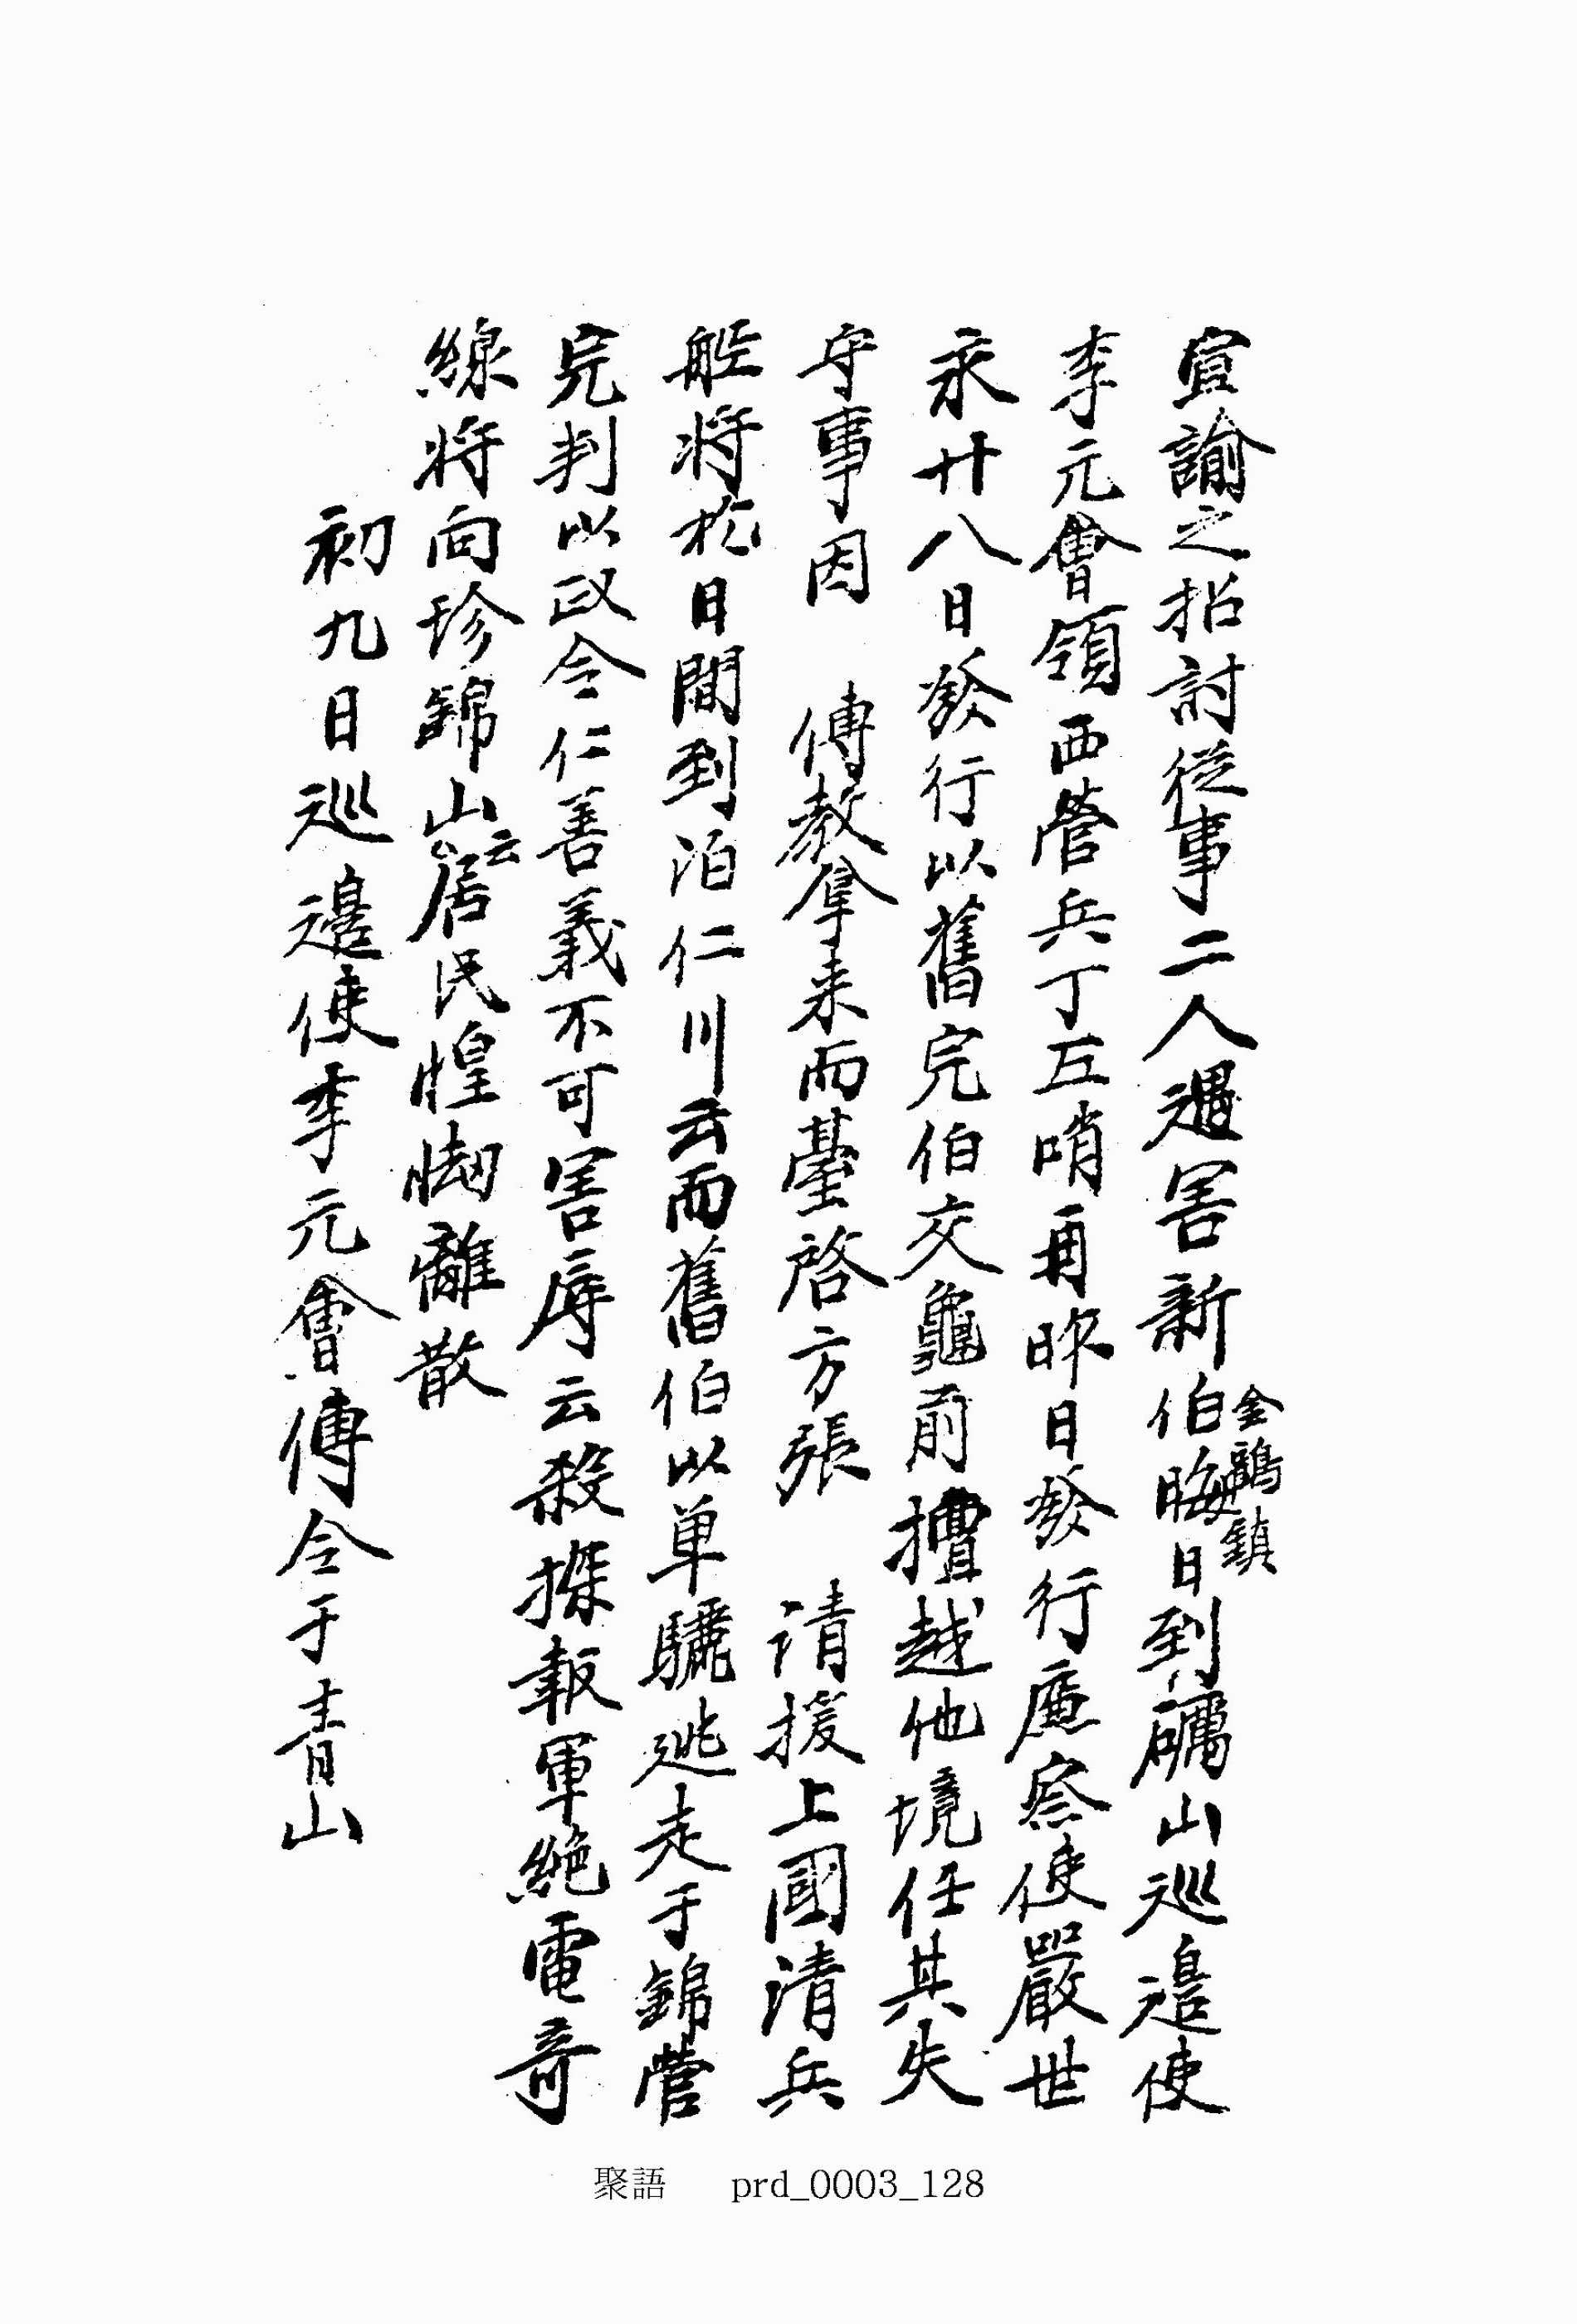 宣諭之招討從事二人遇害新伯金鶴鎮晦日到礪山巡邊使
李元會領西營兵丁五哨再昨日發行廉察使嚴世
永廿八日發行以舊完伯交龜前擅越他境任其失
守事因　傳教拿来而臺啓方張　請援上國清兵
船將於日間到泊仁川云而舊伯以单驪逃走于錦營
完判以政令仁善義不可害辱云殺探報軍絶電奇
線將向珍錦山云云居民惶怮離散
初九日巡邊使李元會傳令于青山
聚語　prd_0003_128